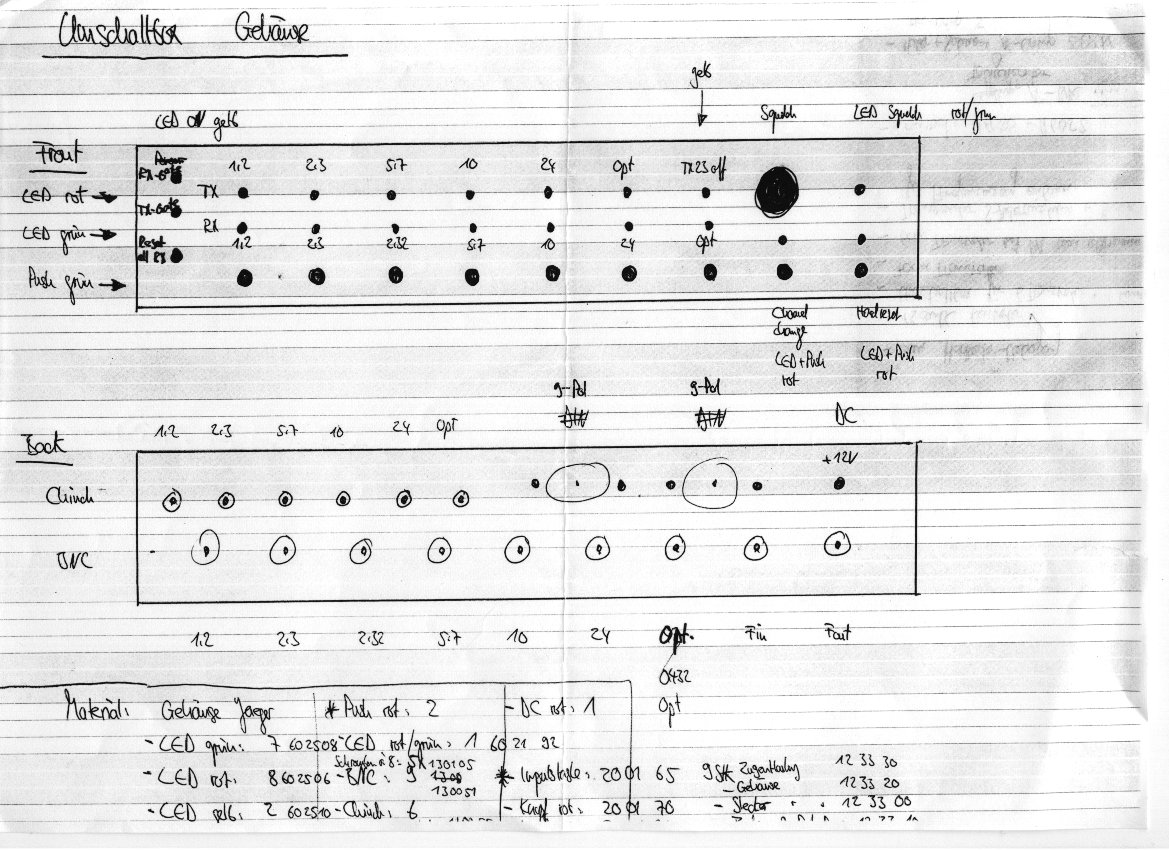 Umschaltbox Gehäuse
gelb
LED ON gelb
Squelch
LED Squelch rot/grün
Front
RX-Gelb
1.2 2.3 5.7 10 24 Opt TX23 off
LED rot → TX
TX-Gelb
LED grün → RX
Reset all RX
1.2 2.3 2.32 5.7 10 24 Opt
Push grün →
Channel change
LED+Push rot
Hardreset
LED+Push rot
9-Pol 9-Pol
DIN DIN DC
1.2 2.3 5.7 10 24 Opt
Back
+12V
Chinch
BNC
1.2 2.3 2.32 5.7 10 24 Opt. Fin Fout
0432
Opt
Material: Gehäuse Jaeger * Push rot: 2 - DC rot: 1
- LED grün: 7 602508 - LED rot/grün: 1 60 21 92
Schrauben
130105
- LED rot: 8 602506 - BNC: 9 1300 * Impulstaste: 2001 65 9Stk Zugentlastung 12 33 30
130051
- Gehäuse 12 33 20
- LED gelb: 2 602510 - Chinch: 6 - Knopf rot: 2001 70 - Stecker " " 12 33 00